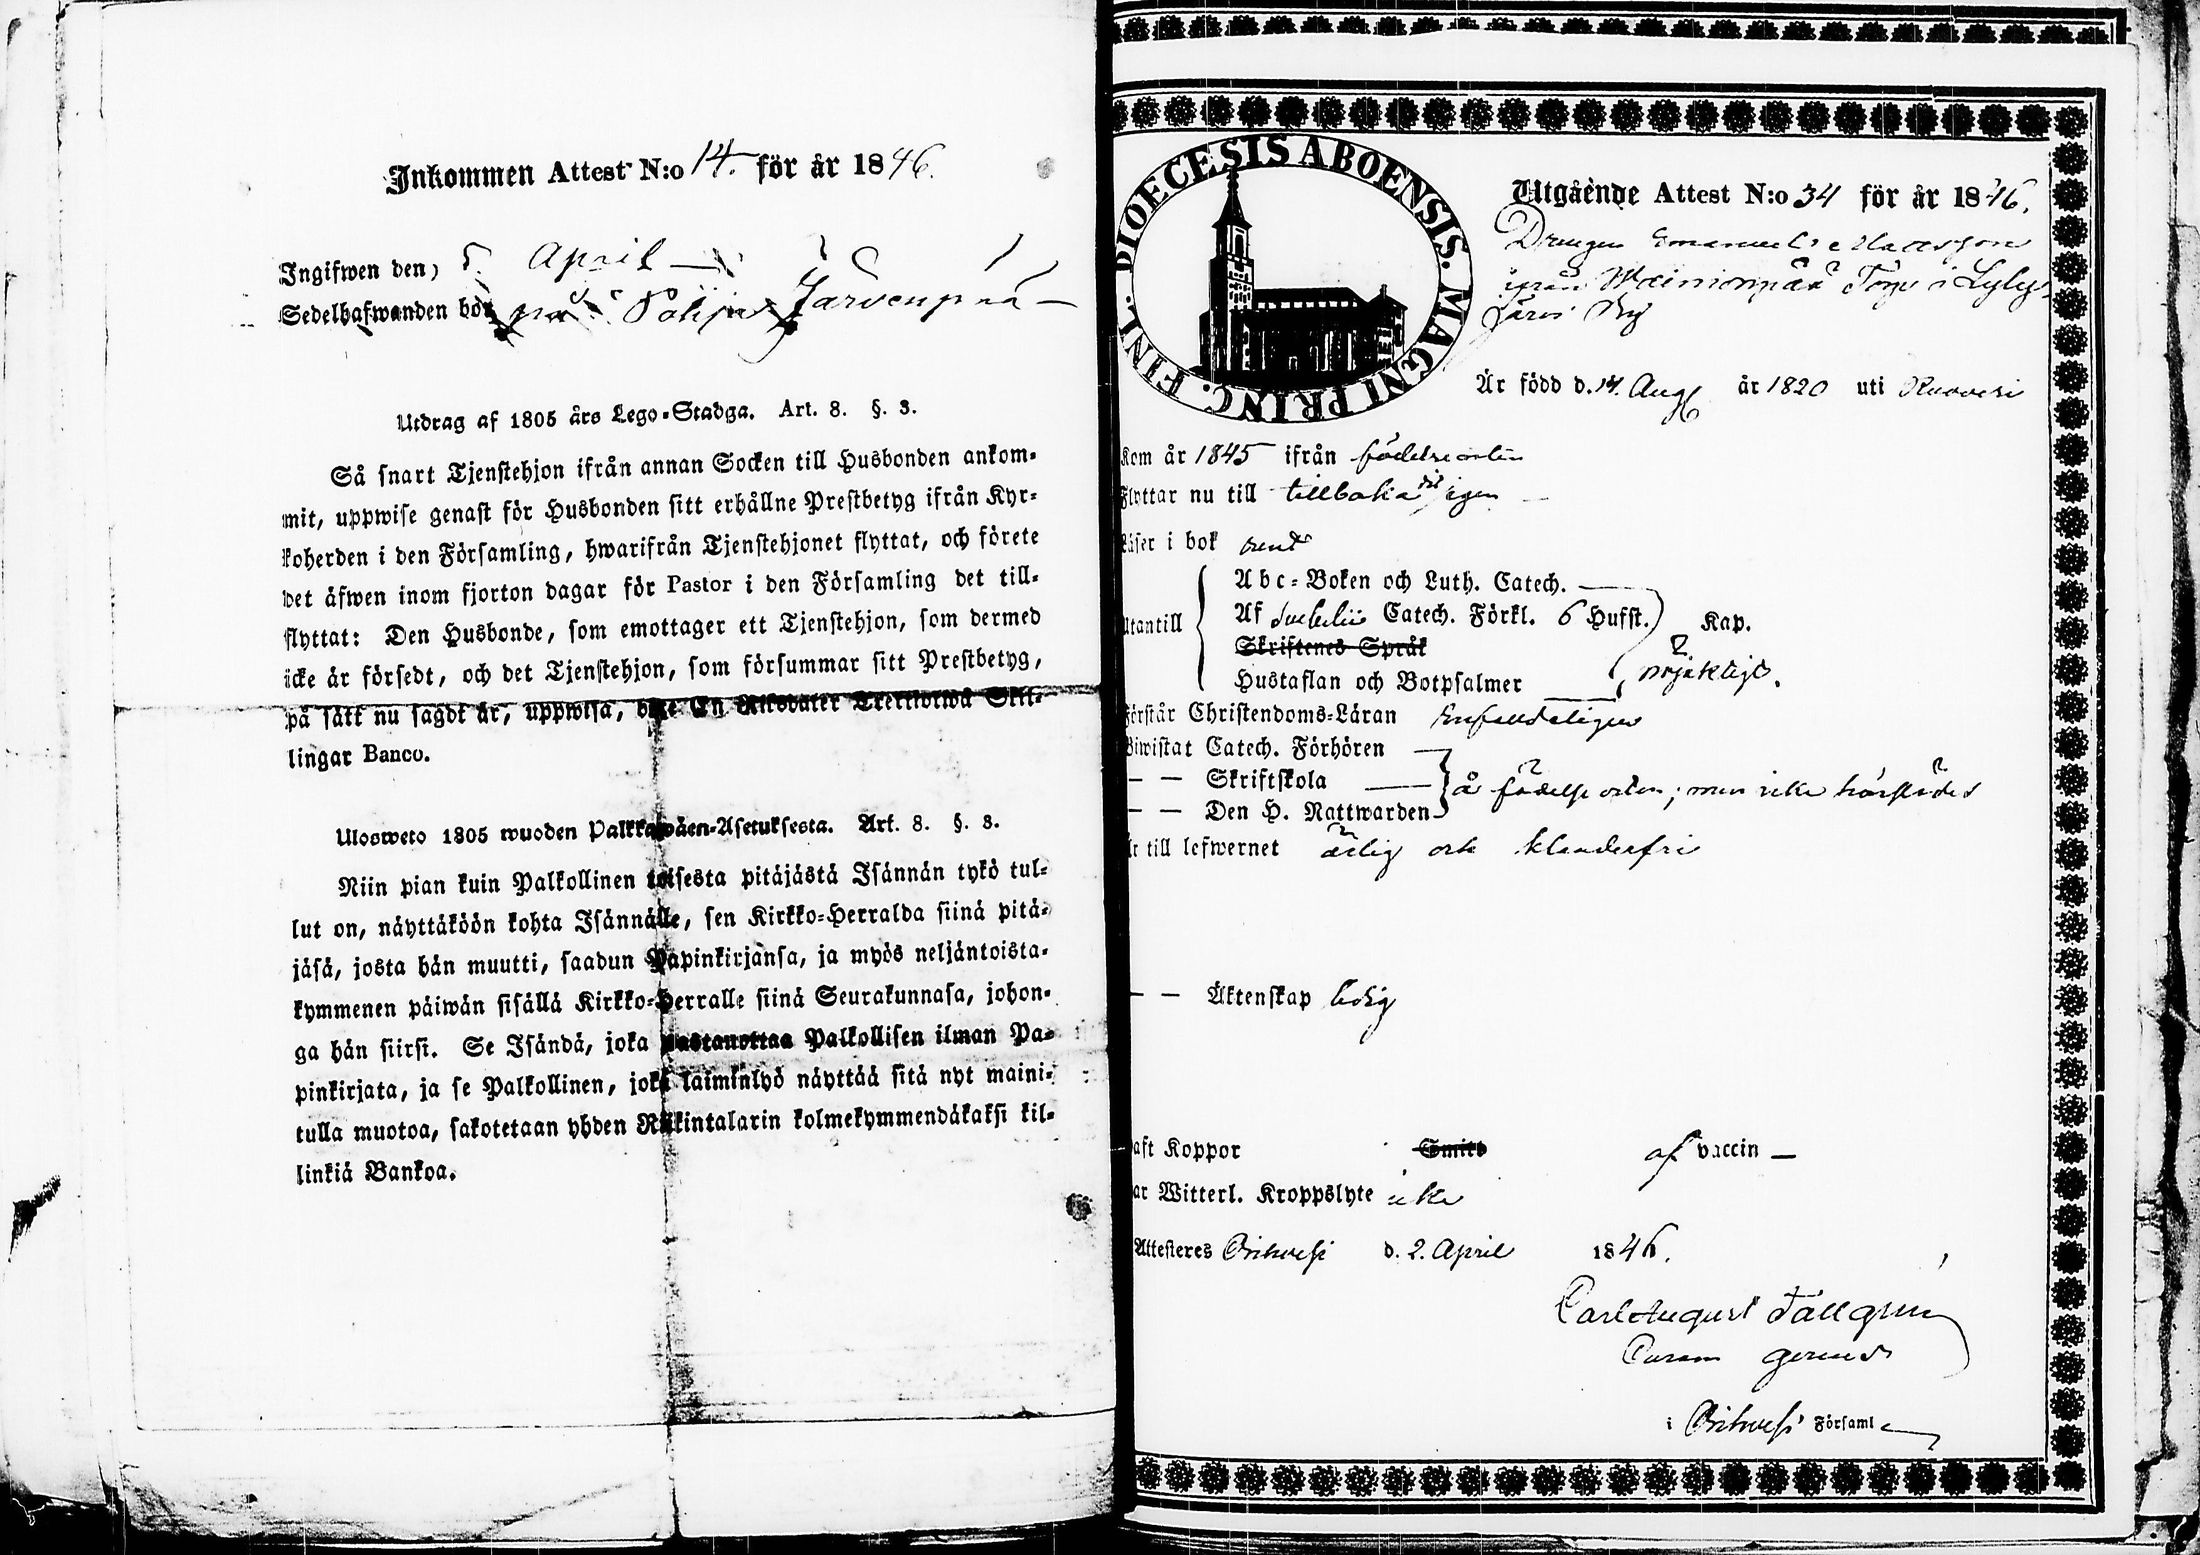 Inkommen Attest N:o 14. för år 1846.
Ingifwen den, 5. April
Sedelhafwanden bor på Pohjas Järvenpää
Utdrag af 1805 års Lego-Stadga. Art. 8. §. 3.
Så snart Tjenstehjon ifrån annan Socken till Husbonden ankom-
mit, uppwise genast för Husbonden sitt erhållne Prestbetyg ifrån Kyr-
koherden i den Församling, hwarifrån Tjenstehjonet flyttat, och förete
det äfwen inom fjorton dagar för Pastor i den Församling det till-
flyttat: Den Husbonde, som emottager ett Tjenstehjon, som dermed
icke är försedt, och det Tjenstehjon, som försummar sitt Prestbetyg,
på sätt nu sagdt är, uppwisa, böte En Riksdaler Trettiotwå Skil-
lingar Banco.
Ulosweto 1805 wuoden Palkkawäen-Asetuksesta. Art. 8. §. 3.
Niin pian kuin Palkollinen toisesta pitäjästä Isännän tykö tul-
lut on, näyttäköön kohta Isännälle, sen Kirkko-Herralda siinä pitä-
jäsä, josta hän muutti, saadun Papinkirjansa, ja myös neljäntoista-
kymmenen päiwän sisällä Kirkko-Herralle siinä Seurakunnasa, johon-
ga hän siirsi. Se Isändä, joka wastanottaa Palkollisen ilman Pa-
pinkirjata, ja se Palkollinen, joka laiminlyö näyttää sitä nyt maini-
tulla muotoa, sakotetaan yhden Riikintalarin kolmekymmendäkaksi kil-
linkiä Bankoa.
DIOECESIS ABOENSIS. MAGNI PRINC. FINL.
Utgående Attest N:o 34 för år 1846.
Drengen Emanuel
ifrån Wäinionpää Torp i Lyly-
järvi By
Är född d. 14. Aug år 1820 uti Ruovesi
Kom år 1845 ifrån födelseorten
Flyttar nu till tillbaka dit igen
Läser i bok rent
Utantill
Abc-Boken och Luth. Catech.
Af Svebelii Catech. Förkl. 6 Hufst. Kap.
Skriftenes Språk
Hustaflan och Botpsalmer nöjaktigt.
Förstår Christendoms-Läran Enfaldeligen
Biwistat Catech. Förhören
— — Skriftskola å födelse orten; men icke härstädes
— — Den H. Nattwarden
Är till lefwernet ärlig och klanderfri
— — Äktenskap ledig
Haft Koppor Smitt af vaccin —
Har Witterl. Kroppslyte icke
Attesteres Orihvesi d. 2. April 1846.
Carl August Tallgren
Curam gerens
i Orihvesi Församl